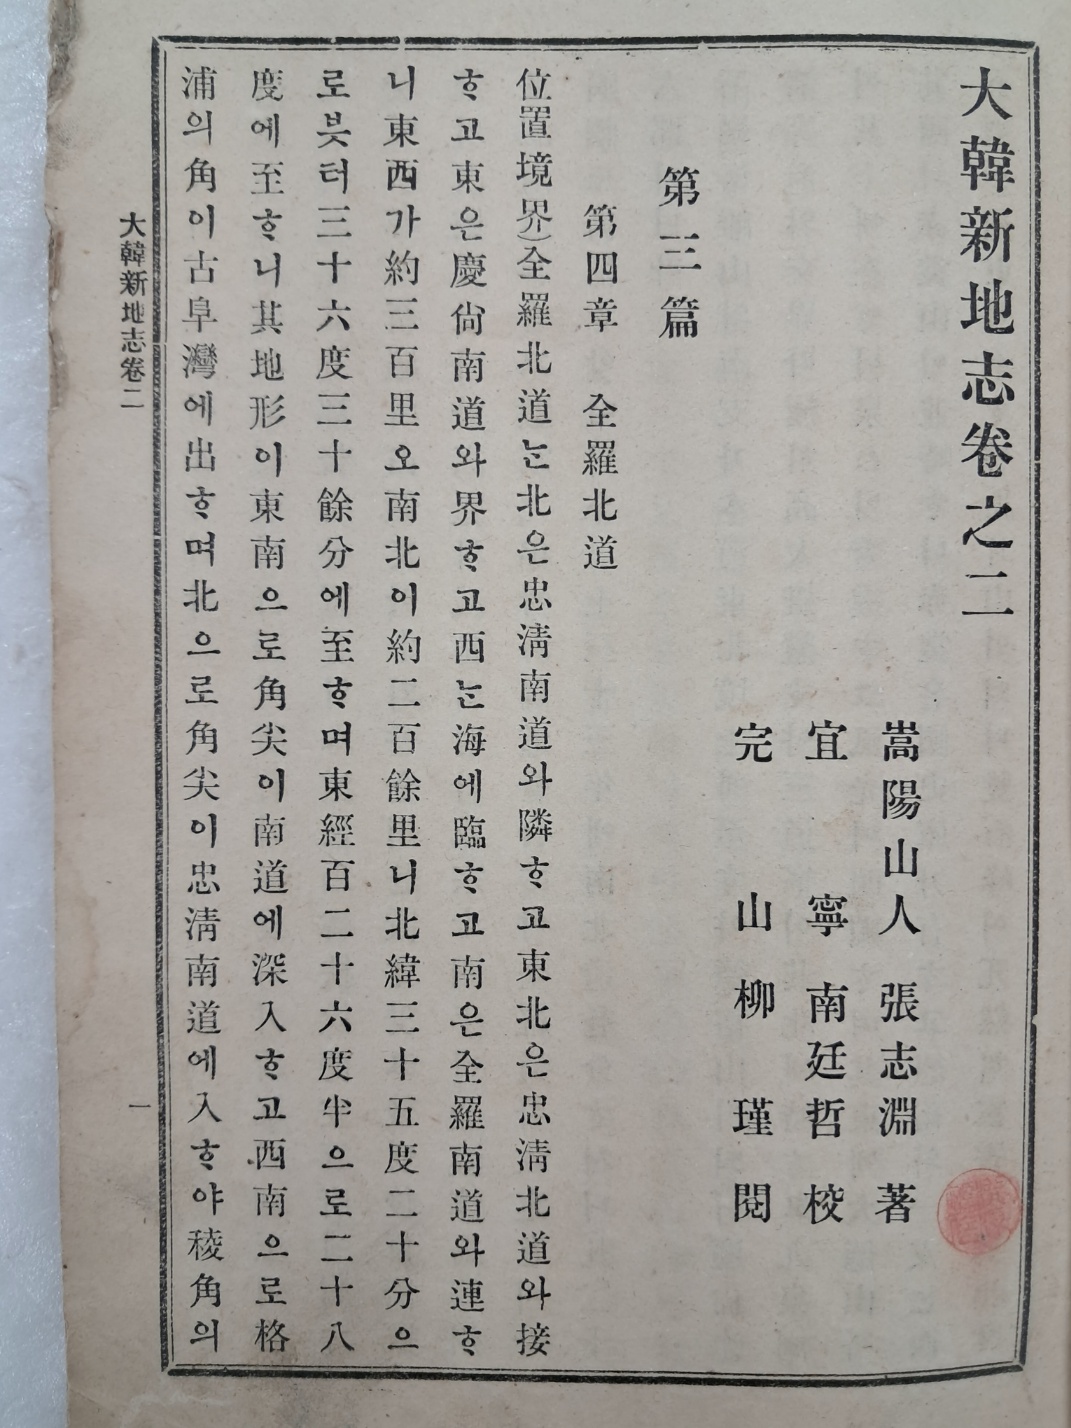 大韓新地志卷之二
嵩陽山人 張志淵 著
宜寧 南廷哲 校
完山 柳瑾 閱
第三篇
第四章 全羅北道
位置境界)全羅北道ᄂᆞᆫ北은忠淸南道와隣ᄒᆞ고東北은忠淸北道와接
ᄒᆞ고東은慶尙南道와界ᄒᆞ고西ᄂᆞᆫ海에臨ᄒᆞ고南은全羅南道와連ᄒᆞ
니東西가約三百里오南北이約二百餘里니北緯三十五度二十分으
로븟터三十六度三十餘分에至ᄒᆞ며東經百二十六度半으로二十八
度에至ᄒᆞ니其地形이東南으로角尖이南道에深入ᄒᆞ고西南으로格
浦의角이古阜灣에出ᄒᆞ며北으로角尖이忠淸南道에入ᄒᆞ야稜角의
大韓新地志卷二
一